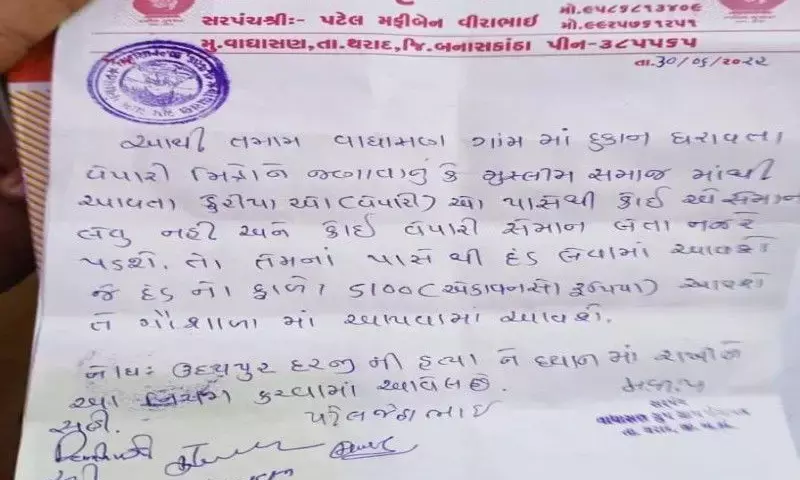 સરપંચશ્રીઃ- પટેલ મફીબેન વીરાભાઈ
મો.૯૫૮૬૮૧૩૪૦૬
મો.૯૯૨૫૭૬૧૨૫૧
મુ.વાઘાસણ,તા.થરાદ,જિ.બનાસકાંઠા પીન-૩૮૫૫૬૫
તા.30/06/૨૦૨૨
આથી તમામ વાઘાસણ ગામ માં દુકાન ધરાવતા
વેપારી મિત્રોને જણાવાનું કે મુસ્લીમ સમાજ માંથી
આવતા ફેરીયા ઓ (વેપારી) ઓ પાસેથી કોઈ એ સેમાન
લેવુ નહી અને કોઈ વેપારી સેમાન લેતા નજરે
પડશે. તો તેમનાં પાસે થી દંડ લેવામાં આવશે
જે દંડ નો ફાળો 5100(એકાવનસો રૂપિયા) આવશે
તે ગૌશાળા માં આપવામાં આવશે.
નોધઃ ઉદયપુર દરજી ની હત્યા ને ધ્યાન માં રાખીને
આ નિયમ કરવામાં આવેલ છે.
સહી.
સરપંચ